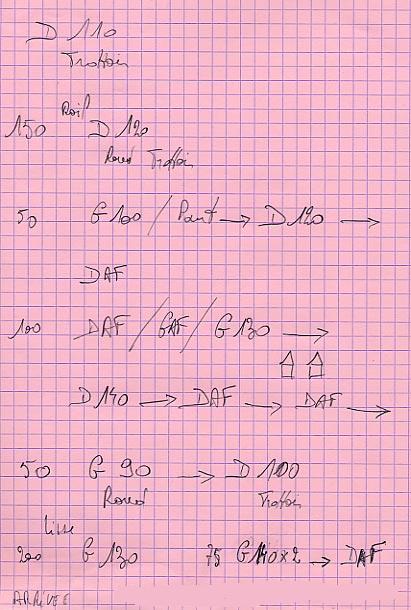 D 110
Trottoir
Rail
150 D 120
Rond Trottoir
50 G 100 / Pont → D 120 →
DAF
100 DAF / GAF / G 130 →
D 140 → DAF → DAF →
50 G 90 → D 100
Rond Trottoir
lisse
200 G 130 75 G 140 x 2 → DAF
ARRIVEE